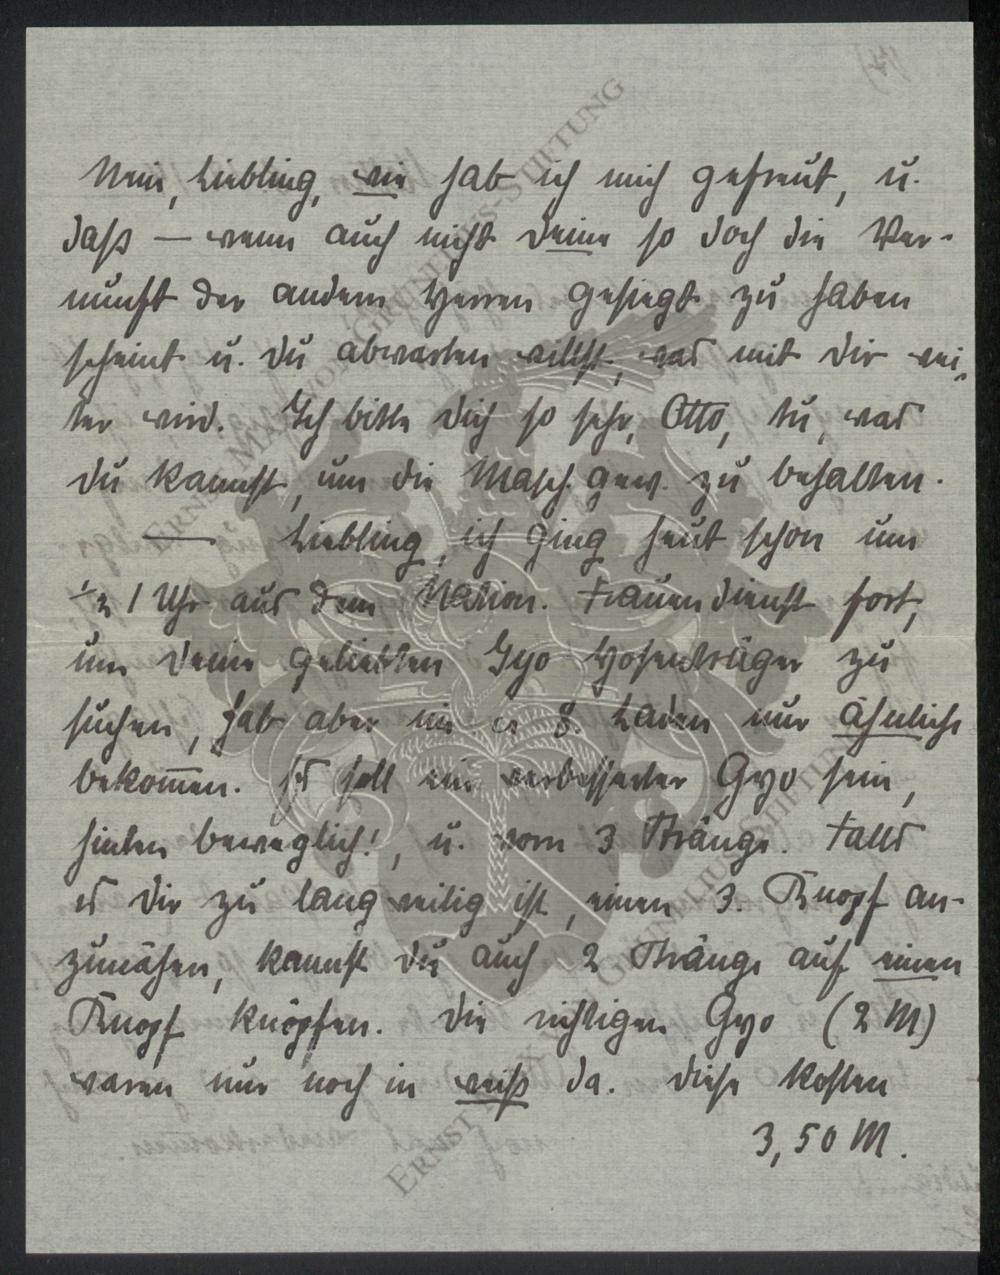 Nein, Liebling, wie hab ich mich gefreut, u.
daß — wenn auch nicht deine so doch die Ver-
nunft der andern Herren gesiegt zu haben
scheint u. du abwarten willst, was mit dir wei-
ter wird. Ich bitte dich so sehr, Otto, tu, was
du kannst, um die Masch. gew. zu behalten.
— Liebling, ich ging heut schon um
½ 1 Uhr aus dem Nation. Frauendienst fort,
um deine geliebten Gyo Hosenträger zu
suchen, hab aber in ca 8 Läden nur ähnliche
bekommen. Es soll ein verbesserter Gyo sein,
hinten beweglich!, u. vorn 3 Stränge. Falls
es dir zu langweilig ist, einen 3. Knopf an-
zunähen, kannst du auch 2 Stränge auf einen
Knopf knöpfen. Die richtigen Gyo (2 M)
waren nur noch in weiß da. Diese kosten
3,50 M.
ERNST MAX VON GRUNELIUS-STIFTUNG
ERNST MAX VON GRUNELIUS-STIFTUNG